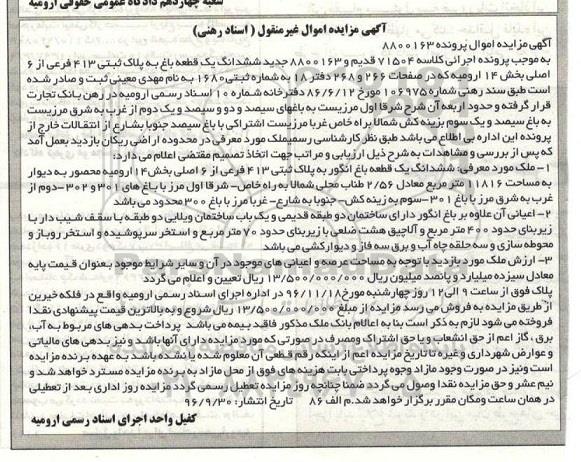 شعبه چهاردهم دادگاه عمومی حقوقی ارومیه
آگهی مزایده اموال غیرمنقول ( اسناد رهنی)
آگهی مزایده اموال پرونده ۸۸۰۰۱۶۳
به موجب پرونده اجرائی کلاسه ۷۱۵۰۴ قدیم و ۸۸۰۰۱۶۳ جدید ششدانگ یک قطعه باغ به پلاک ثبتی ۴۱۳ فرعی از ۶
اصلی بخش ۱۴ ارومیه که در صفحات ۲۶۶ و ۲۶۸ دفتر ۱۸ به شماره ثبتی ۱۶۸۰ به نام مهدی معینی ثبت و صادر شده
است طبق سند رهنی شماره ۱۰۶۹۷۵ مورخ ۸۶/۶/۱۲ دفترخانه شماره ۱۰ اسناد رسمی ارومیه در رهن بانک تجارت
قرار گرفته و حدود اربعه آن شرح شرقا اول مرزیست به باغهای سیصد و دو و سیصد و یک دوم از غرب به شرق مرزیست
به باغ سیصد و یک سوم بزینه کش شمالا براه خاص غربا مرزیست اشتراکی با باغ سیصد جنوبا بشارع از انتقالات خارج از
پرونده این اداره بی اطلاع می باشد طبق نظر کارشناسی رسمی ملک مورد معرفی در محدوده اراضی ریکان بازدید بعمل آمد
که پس از بررسی و مشاهدات به شرح ذیل ارزیابی و مراتب جهت اتخاذ تصمیم مقتضی اعلام می دارد:
۱- ملک مورد معرفی: ششدانگ یک قطعه باغ انگور به پلاک ثبتی ۴۱۳ فرعی از ۶ اصلی بخش ۱۴ ارومیه محصور به دیوار
به مساحت ۱۱۸۱۶ متر مربع معادل ۲/۵۶ طناب محلی شمالا به راه خاص- شرقا اول مرز با باغ های ۳۰۱ و ۳۰۲-دوم از
غرب به شرق مرز با باغ ۳۰۱-سوم به زینه کش- جنوبا به شارع- غربا مرز با باغ ۳۰۰ محدود می باشد
۲- اعیانی آن علاوه بر باغ انگور دارای ساختمان دو طبقه قدیمی و یک باب ساختمان ویلایی دو طبقه با سقف شیب دار با
زیربنای حدود ۴۰۰ متر مربع و آلاچیق هشت ضلعی با زیربنای حدود ۷۰ متر مربع و استخر سرپوشیده و استخر روباز و
محوطه سازی و سه حلقه چاه آب و برق سه فاز و دیوارکشی می باشد
۳- ارزش ملک مورد بازدید با توجه به مساحت عرصه و اعیانی های موجود در آن و سایر شرایط موجود بعنوان قیمت پایه
معادل سیزده میلیارد و پانصد میلیون ریال ۱۳/۵۰۰/۰۰۰/۰۰۰ ریال تعیین و اعلام می گردد
پلاک فوق از ساعت ۹ الی ۱۲ روز چهارشنبه مورخ ۹۶/۱۱/۱۸ در اداره اجرای اسناد رسمی ارومیه واقع در فلکه خیرین
از طریق مزایده به فروش می رسد مزایده از مبلغ ۱۳/۵۰۰/۰۰۰/۰۰۰ ریال شروع و به بالاترین قیمت پیشنهادی نقدا
فروخته می شود لازم به ذکر است بنا به اعلام بانک ملک مذکور فاقد بیمه می باشد پرداخت بدهی های مربوط به آب،
برق، گاز اعم از حق انشعاب و یا حق اشتراک و مصرف در صورتی که مورد مزایده دارای آنها باشد و نیز بدهی های مالیاتی
و عوارض شهرداری و غیره تا تاریخ مزایده اعم از اینکه رقم قطعی آن معلوم شده یا نشده باشد به عهده برنده مزایده
است و نیز در صورت وجود مازاد وجوه پرداختی بابت هزینه های فوق از محل مازاد به برنده مزایده مسترد خواهد شد و
نیم عشر و حق مزایده نقدا وصول می گردد ضمنا چنانچه روز مزایده تعطیل رسمی گردد مزایده روز اداری بعد از تعطیلی
در همان ساعت ومکان مقرر برگزار خواهد شد.م الف ۸۶ تاریخ انتشار: ۹۶/۹/۳۰
کفیل واحد اجرای اسناد رسمی ارومیه